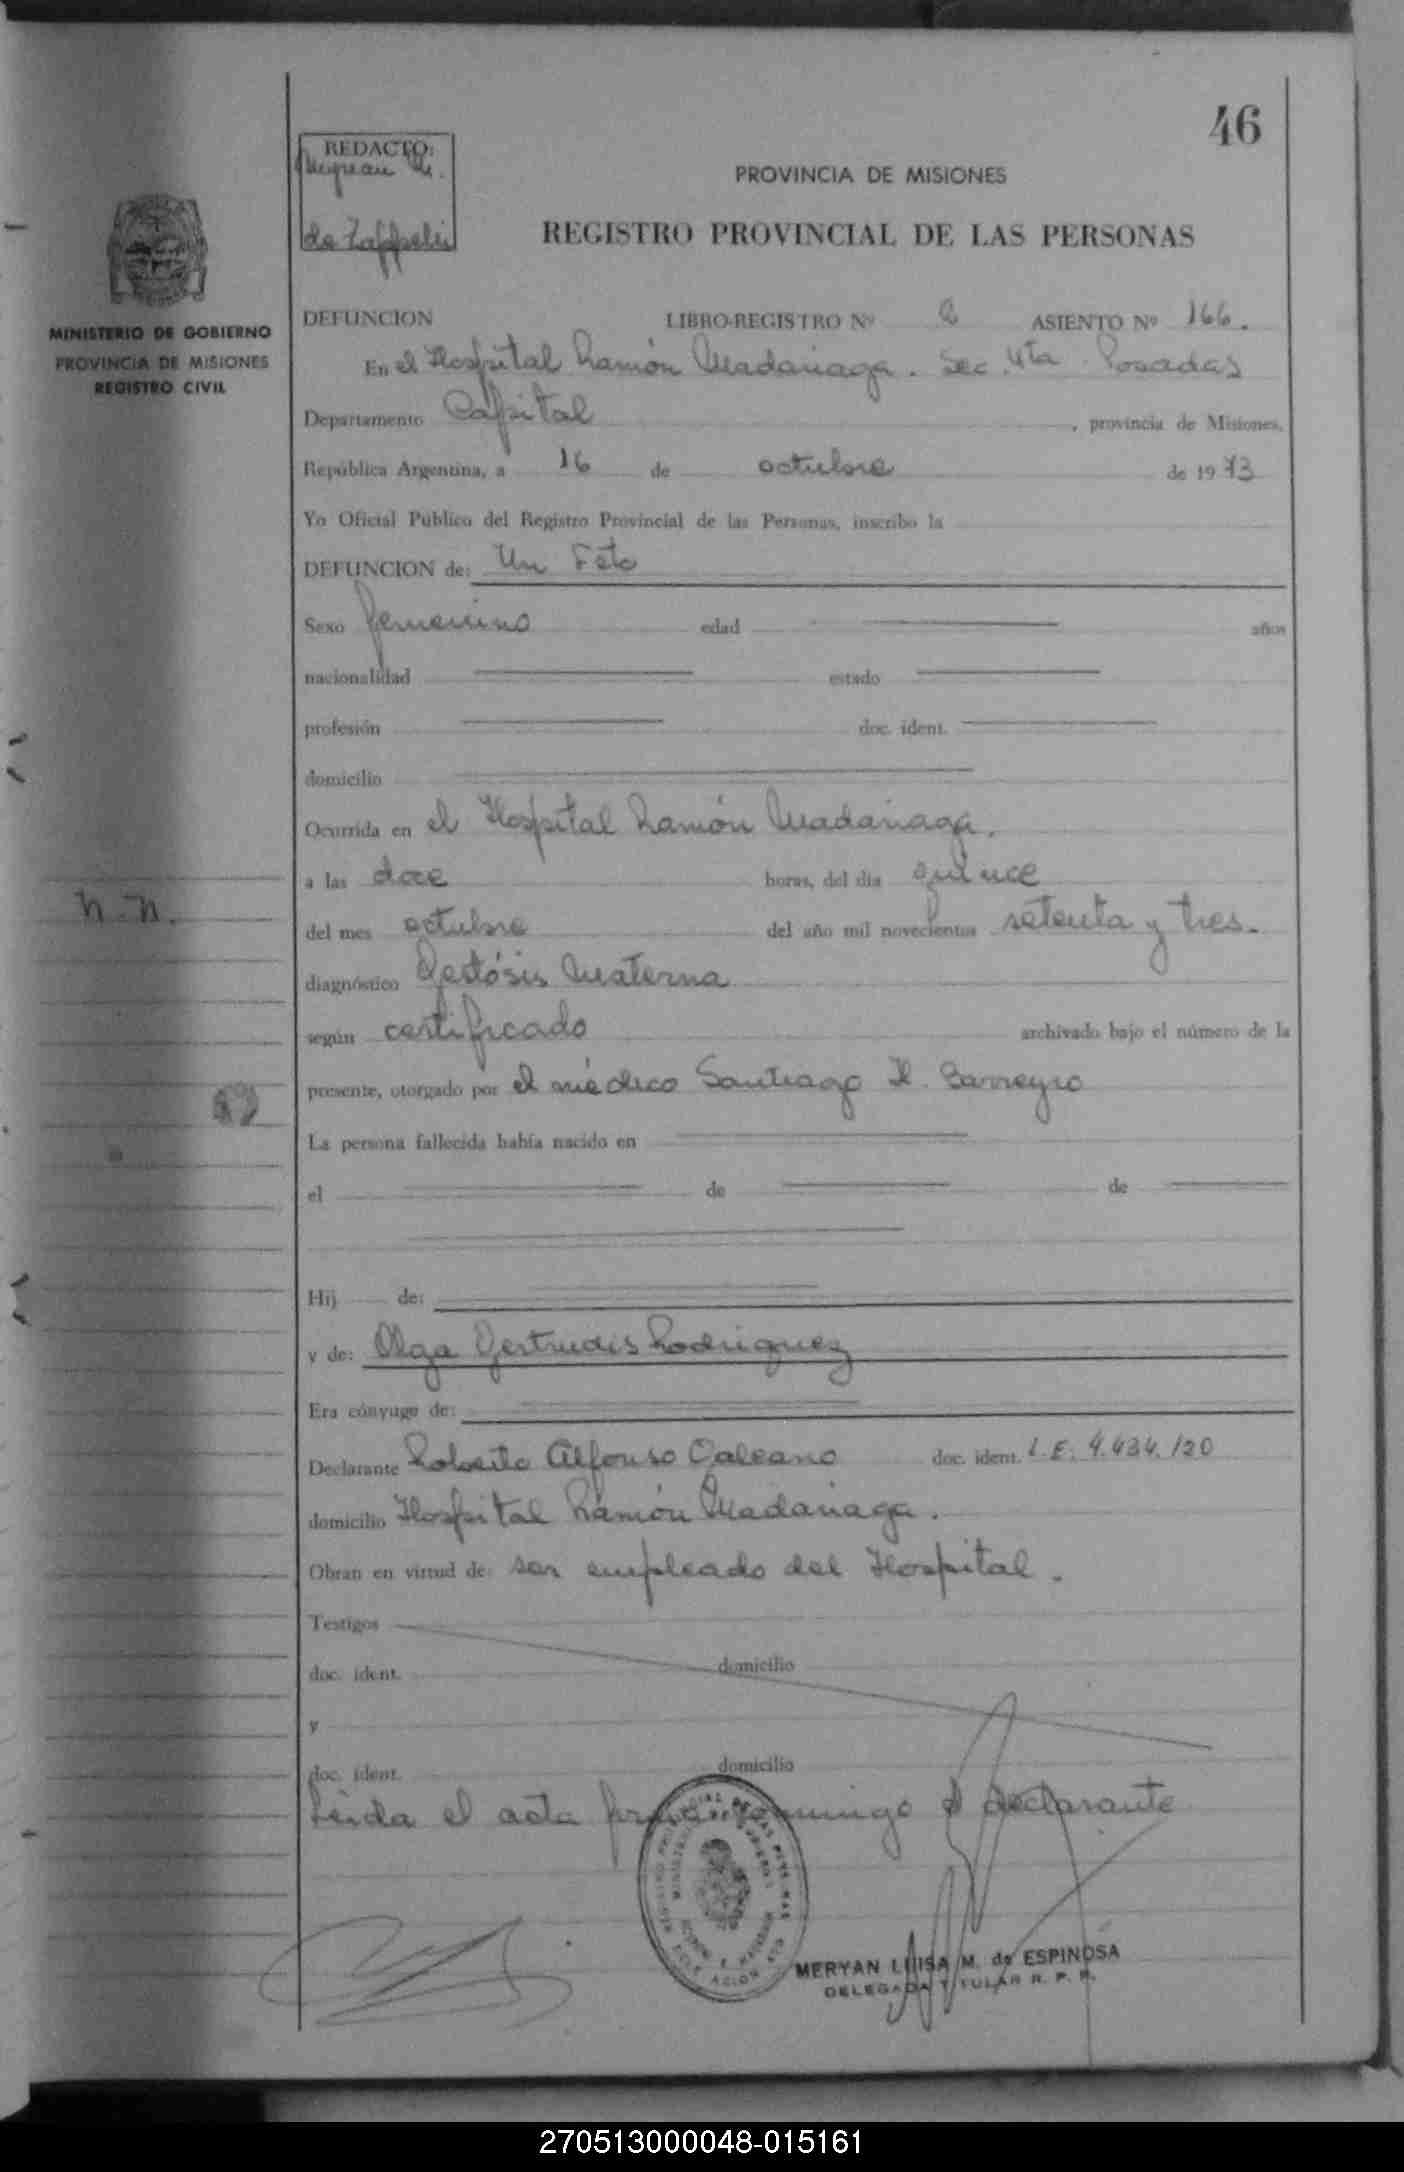 46
REDACTO:
de Zappelli
PROVINCIA DE MISIONES
REGISTRO PROVINCIAL DE LAS PERSONAS
MINISTERIO DE GOBIERNO
PROVINCIA DE MISIONES
REGISTRO CIVIL
DEFUNCION LIBRO-REGISTRO Nº 2 ASIENTO Nº 166.
En el Hospital Ramón Madariaga. Sec. 4ta. Posadas
Departamento Capital, provincia de Misiones,
República Argentina, a 16 de octubre de 1973
Yo Oficial Público del Registro Provincial de las Personas, inscribo la
DEFUNCION de: Un Feto
Sexo femenino edad años
nacionalidad estado
profesión doc. ident.
domicilio
Ocurrida en el Hospital Ramón Madariaga.
a las doce horas, del día quince
n.n.
del mes octubre del año mil novecientos setenta y tres.
diagnóstico Gestósis Materna
según certificado archivado bajo el número de la
presente, otorgado por el médico Santiago H. Barreyro
La persona fallecida había nacido en
el de de
Hij de:
y de: Olga Gertrudis Rodriguez
Era cónyuge de:
Declarante Roberto Alfonso Galeano doc. ident. L.E. 4.434.120
domicilio Hospital Ramón Madariaga.
Obran en virtud de: ser empleado del Hospital.
Testigos
doc. ident. domicilio
y
doc. ident. domicilio
Leída el acta firma conmigo el declarante
MERYAN LUISA M. de ESPINOSA
DELEGADA TITULAR R. P. P.
270513000048-015161